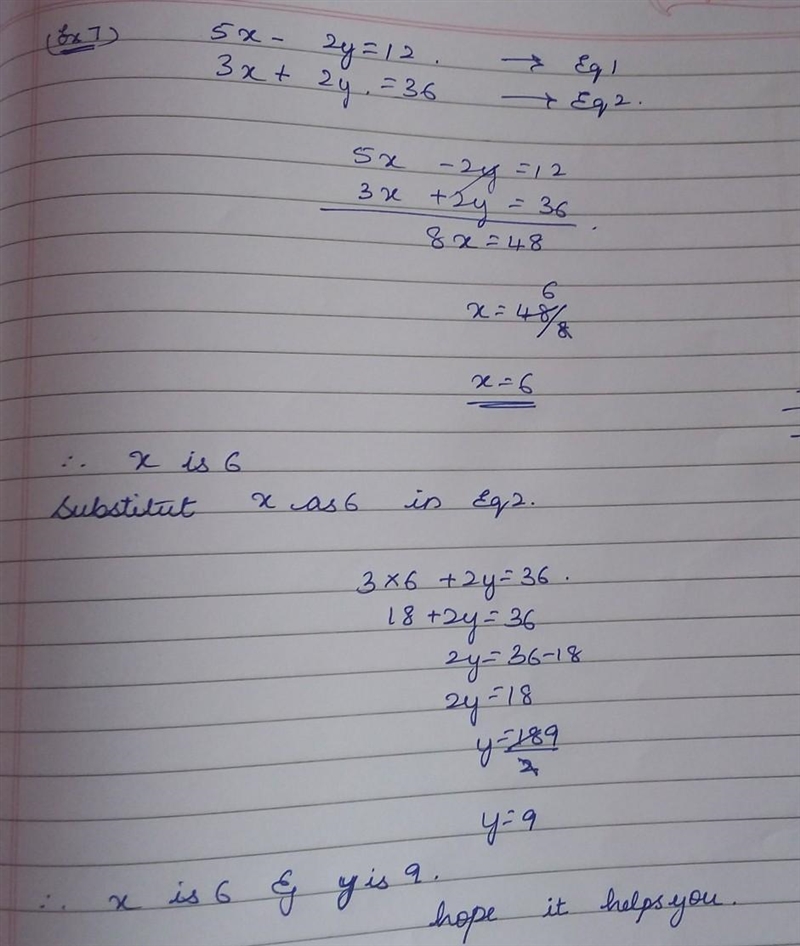 (Ex 7) 5x - 2y = 12. → Eq 1
3x + 2y. = 36 → Eq 2.
5x - 2y = 12
3x + 2y = 36.
8x = 48
6
x = 48/8
x = 6
∴ x is 6
Substitut x as 6 in Eq 2.
3 × 6 + 2y = 36.
18 + 2y = 36
2y = 36 - 18
2y = 18
y = 18 9
2
y = 9
∴ x is 6 & y is 9.
hope it helps you.